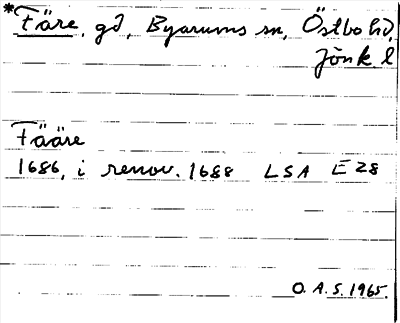 *Färe, gd, Byarums sn, Östbo hd,
Jönk. l
Fääre
1686, i renov. 1688 LSA E 28
O. A. S. 1965.